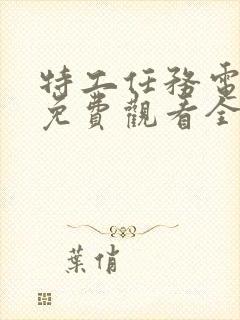 特工任務電
免費觀看全
葉俏